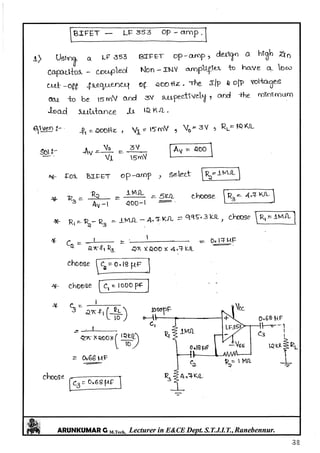 BIFET — LF 353 OP - amp.
1) Using a LF 353 BIFET op-amp, design a high Zin
Capacitos - coupled Non-INV amplifier to have a low
cut-off frequency of 200Hz. The i/p & o/p voltages
are to be 15mV and 3V respectively, and the minimum
load resistance is 12KΩ.
Given :- f1 = 200Hz, Vi = 15mV, Vo = 3V, RL = 12KΩ
Sol :- Av = Vo/Vi = 3V/15mV Av = 200
* For BIFET op-amp, select R2 = 1MΩ
* R3 = R2/(Av-1) = 1MΩ/(200-1) = 5KΩ choose R3 = 4.7KΩ
* R1 = R2 - R3 = 1MΩ - 4.7KΩ = 995.3KΩ, choose R1 = 1MΩ
* C2 = 1/(2π f1 R3) = 1/(2π x 200 x 4.7KΩ) = 0.17μF
choose C2 = 0.18μF
* choose C1 = 1000pF
* C3 = 1/(2π f1 (RL/10))
= 1/(2π x 200 x (12KΩ/10))
= 0.66μF
choose C3 = 0.68μF
1000pF
C1
R1
1MΩ
VCC
+
-
LF353
-VEE
0.68μF
C3
12KΩ
RL
0.18μF
C2
R2 = 1MΩ
R3
4.7KΩ
ARUNKUMAR G M.Tech, Lecturer in E&CE Dept. S.T.J.I.T., Ranebennur.
38